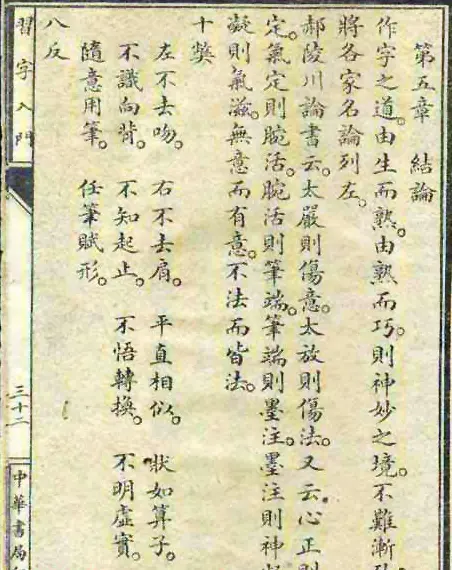 第五章　結論
作字之道。由生而熟。由熟而巧。則神妙之境。不難漸
將各家名論列左。
郝陵川論書云。太嚴則傷意。太放則傷法。又云。心正則
定。氣定則腕活。腕活則筆端。筆端則墨注。墨注則神
凝則氣滋。無意而有意。不法而皆法。
十獘
左不去吻。　右不去肩。　平直相似。　狀如算子。
不識向背。　不知起止。　不悟轉換。　不明虛實。
隨意用筆。　任筆賦形。
八反
習字入門
三十二
中華書局